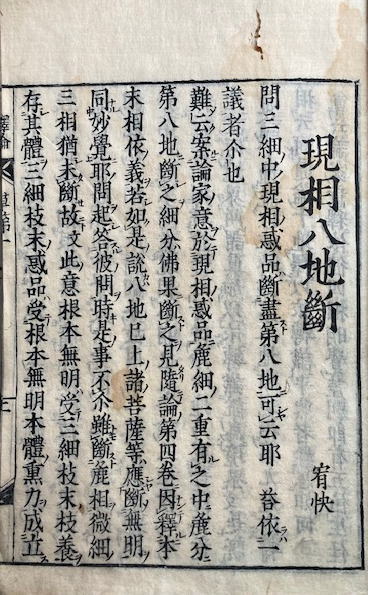 現相八地斷
宥快
問三細中現相惑品斷盡第八地可云耶 荅依一
議者尒也
難云案論家意於現相惑品麁細二重有之中麁分
第八地斷之細分佛果斷之見隨論第四卷因釋本
末相依義若如是說八地已上諸菩薩等應斷無明
同妙覺耶問起答彼問時是事不尒雖斷麁相微細
三相猶未斷故文此意根本無明受三細枝末枝養
存其體三細枝末惑品受根本無明本體熏力成立